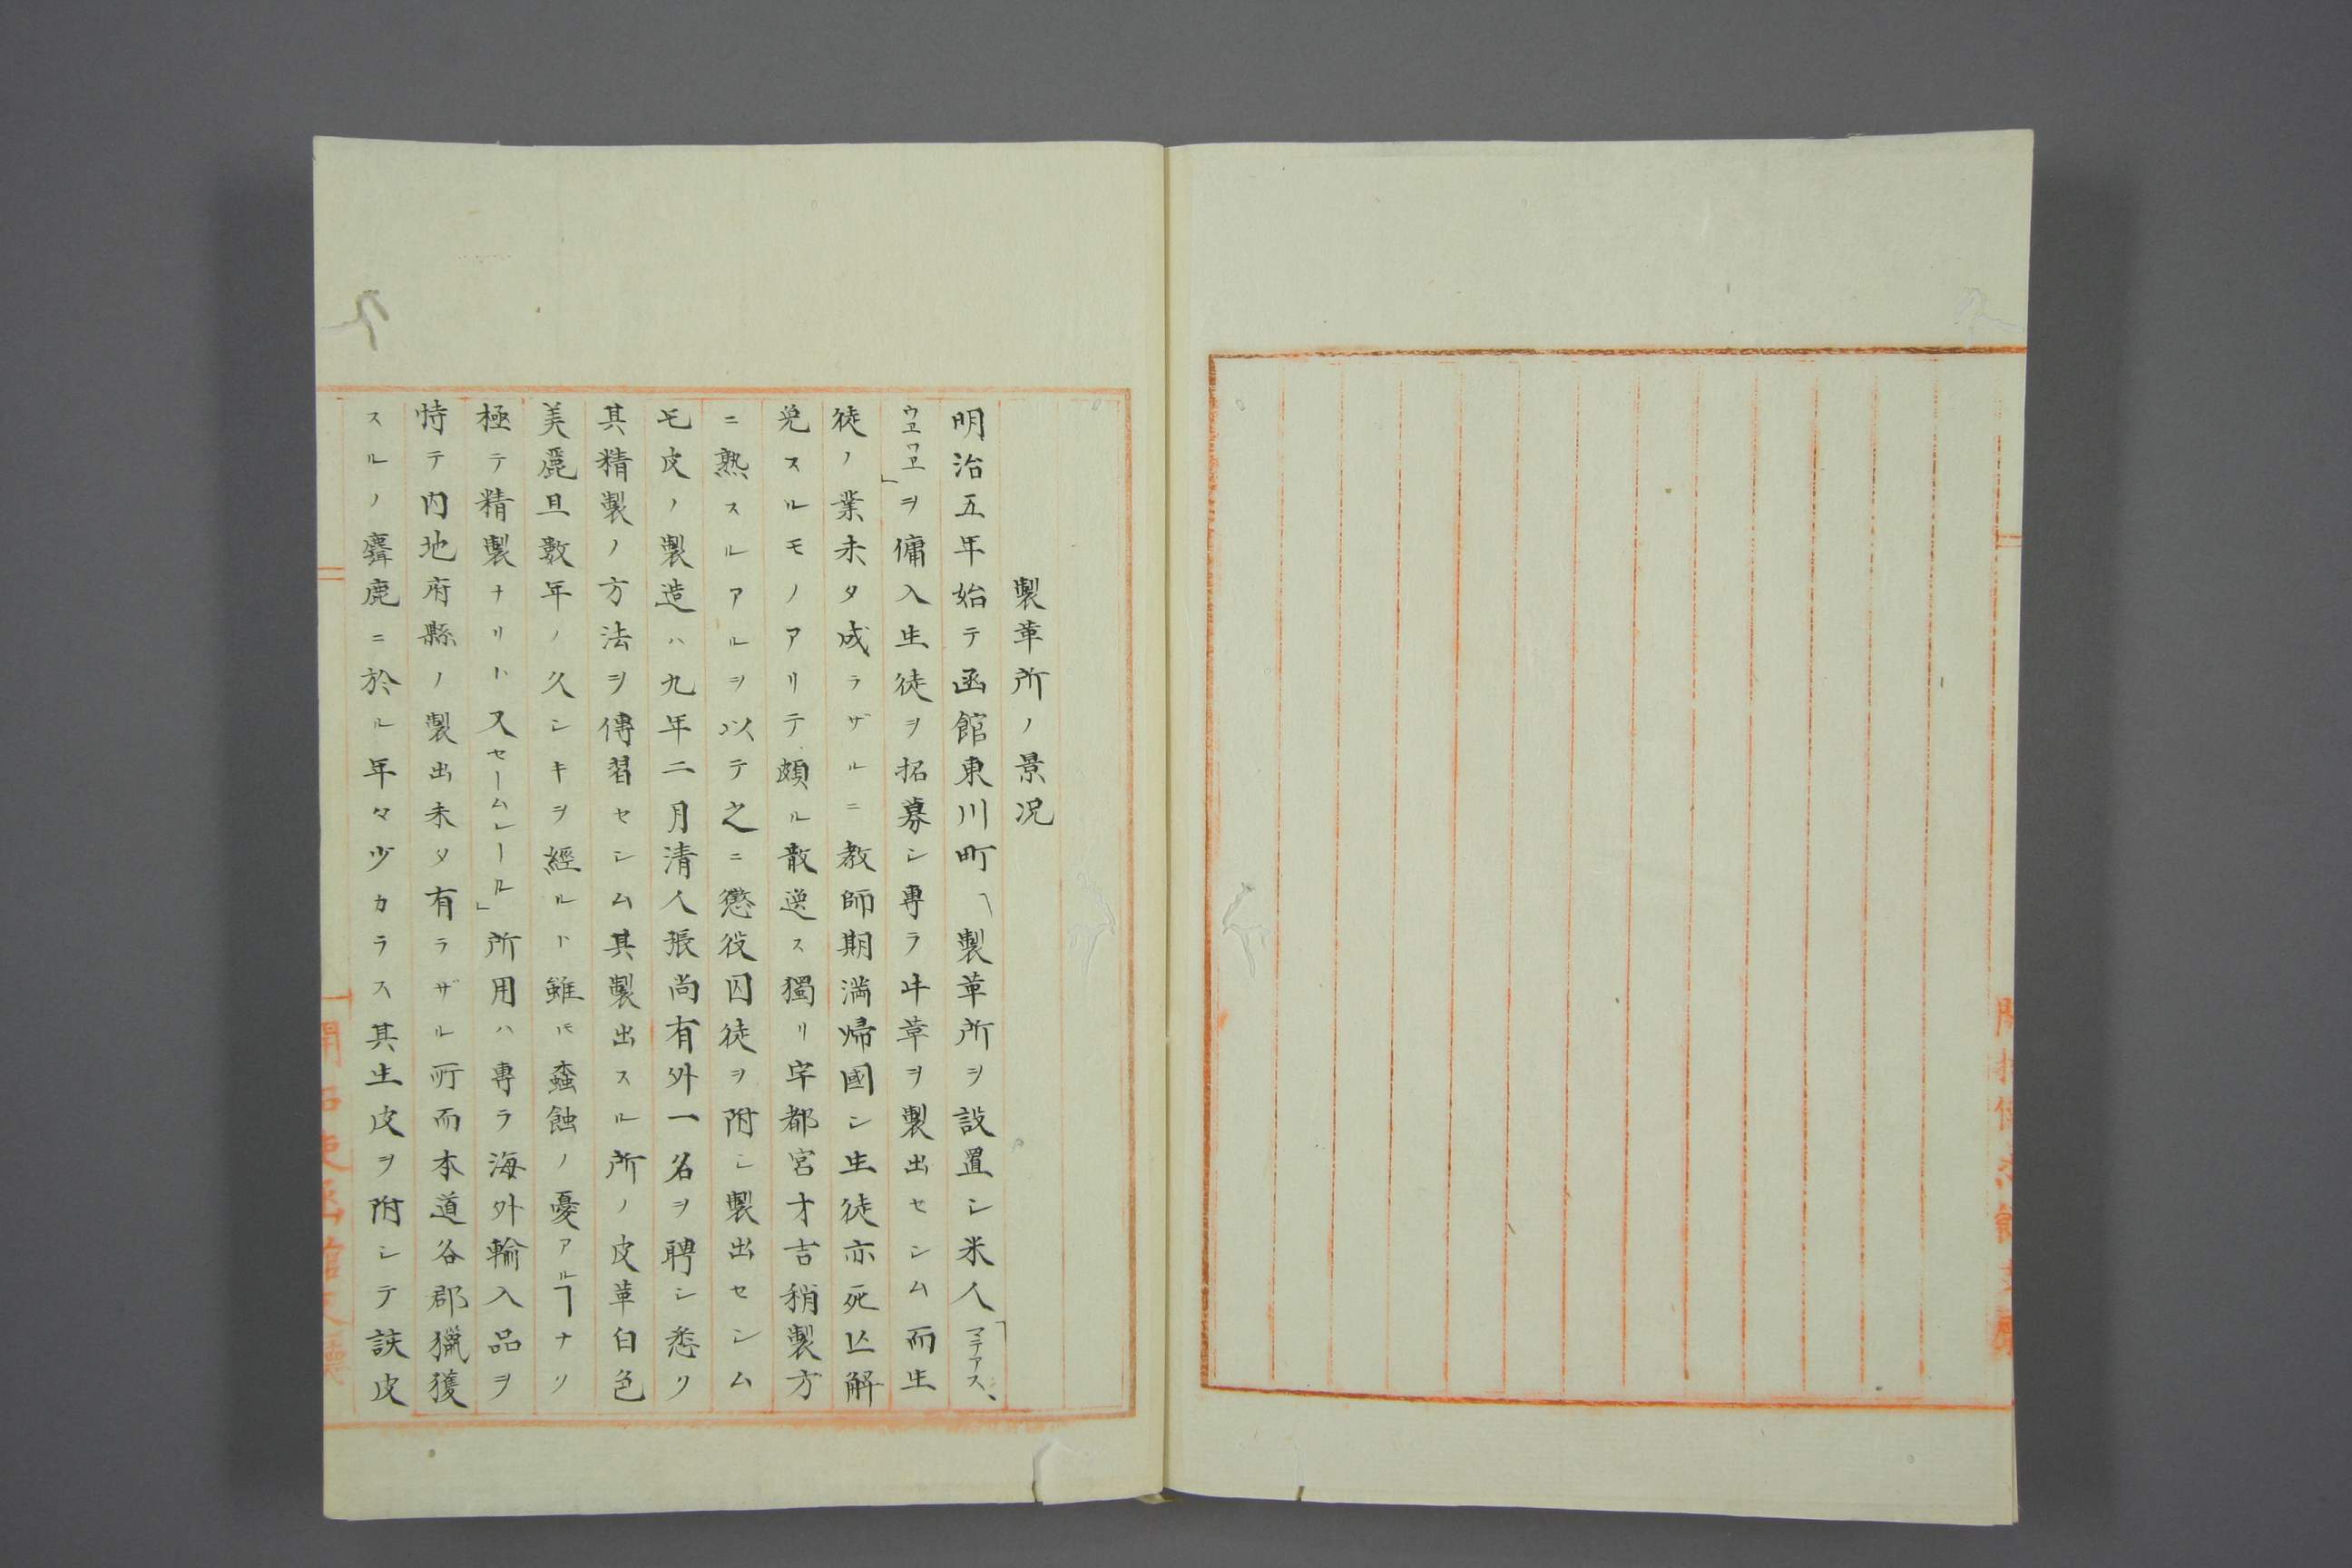 製革所ノ景况
明治五年始テ函館東川町ヘ製革所ヲ設置シ米人「マテアス、
ウヱワヱ」ヲ傭入生徒ヲ招募シ專ラ牛革ヲ製出セシム而生
徒ノ業未タ成ラザルニ教師期満帰國シ生徒亦死亡解
免スルモノアリテ頗ル散逸ス獨リ宇都宮才吉稍製方
ニ熟スルアルヲ以テ之ニ懲役囚徒ヲ附シ製出セシム
毛皮ノ製造ハ九年二月清人張尚有外一名ヲ聘シ悉ク
其精製ノ方法ヲ傳習セシム其製出スル所ノ皮革白色
美麗且數年ノ久シキヲ經ルト雖ㇳモ蝕ノ憂アルヿナク
極テ精製ナリトス「セームレール」所用ハ專ラ海外輸入品ヲ
恃テ内地府縣ノ製出未タ有ラザル所而本道各郡獵獲
スルノ麋鹿ニ於ル年々少カラス其生皮ヲ附シテ該皮
開拓使函館支廳
開拓使函館支廳